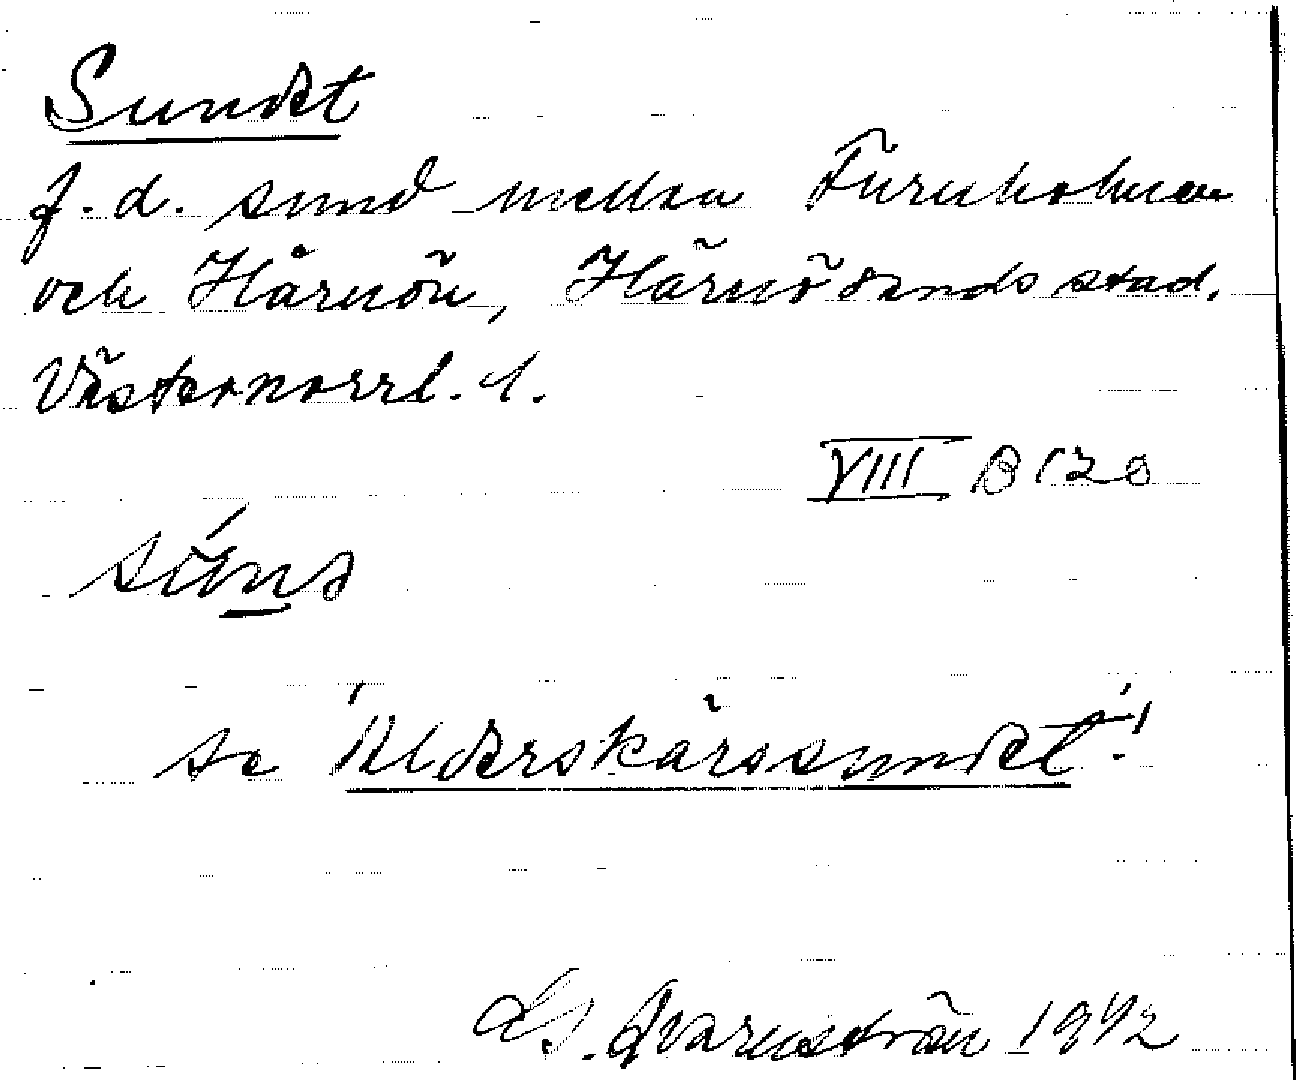 Sundet
f.d. sund mellan Furuholmen
och Härnön, Härnösands stad,
Västernorrl. l.
VIII B 120
se Älderskärssundet!
Qvarnström 1942